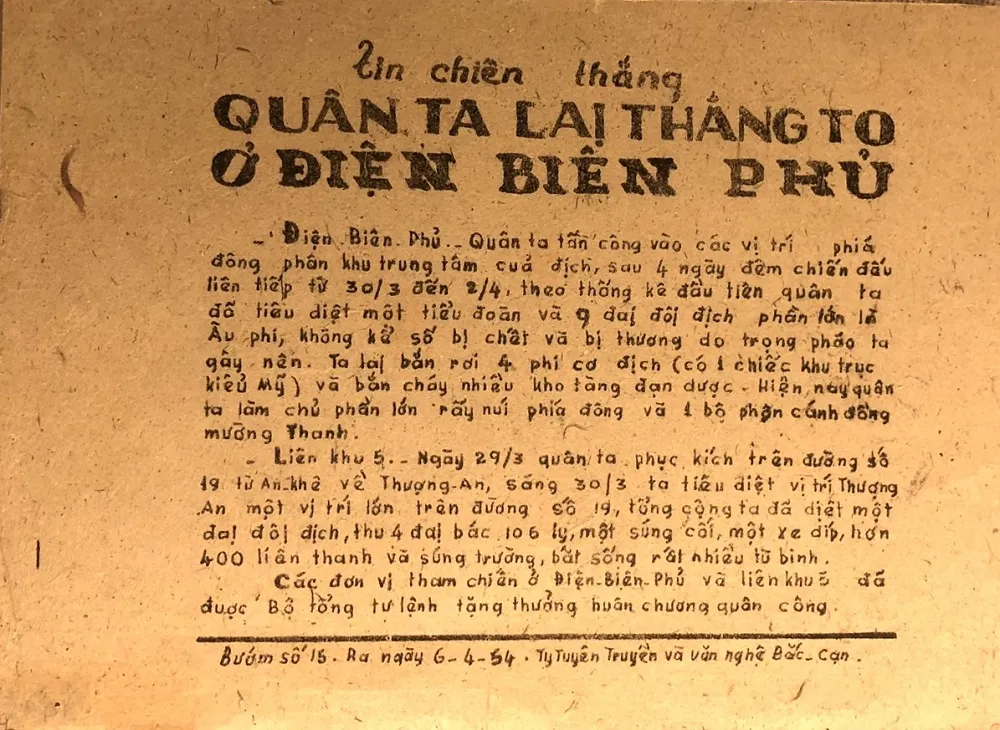 Tin chiến thắng
QUÂN TA LẠI THẮNG TO
Ở ĐIỆN BIÊN PHỦ
_ Điện Biên Phủ _ Quân ta tấn công vào các vị trí phiá
đông phân khu trung tâm cuả địch, sau 4 ngày đêm chiến đấu
liên tiếp từ 30/3 đến 2/4, theo thống kê đầu tiên quân ta
đã tiêu diệt một tiểu đoàn và 9 đaị đôị địch phần lớn là
Âu phi, không kể số bị chết và bị thương do trọng pháo ta
gây nên. Ta laị bắn rơi 4 phi cơ địch (có 1 chiếc khu trục
kiểu Mỹ) và bắn cháy nhiều kho tàng đạn dược. Hiện nay quân
ta làm chủ phần lớn rãy nuí phiá đông và 1 bộ phận cánh đồng
mường Thanh.
_ Liên khu 5. _ Ngày 29/3 quân ta phục kích trên đường số
19 từ An-khê về Thượng-An, sáng 30/3 ta tiêu diệt vị trí Thượng
An một vị trí lớn trên đường số 19, tổng cộng ta đã diệt một
đaị đôị địch, thu 4 đaị bác 106 ly, một súng cối, một xe díp, hơn
400 liên thanh và súng trường, bắt sống rất nhiều tù binh.
Các đơn vị tham chiến ở Điện-Biên-Phủ và liên khu 5 đã
được Bộ tổng tư lệnh tặng thưởng huân chương quân công.
Bướm số 15. Ra ngày 6-4-54. Ty Tuyên Truyền và văn nghệ Bắc-Cạn.